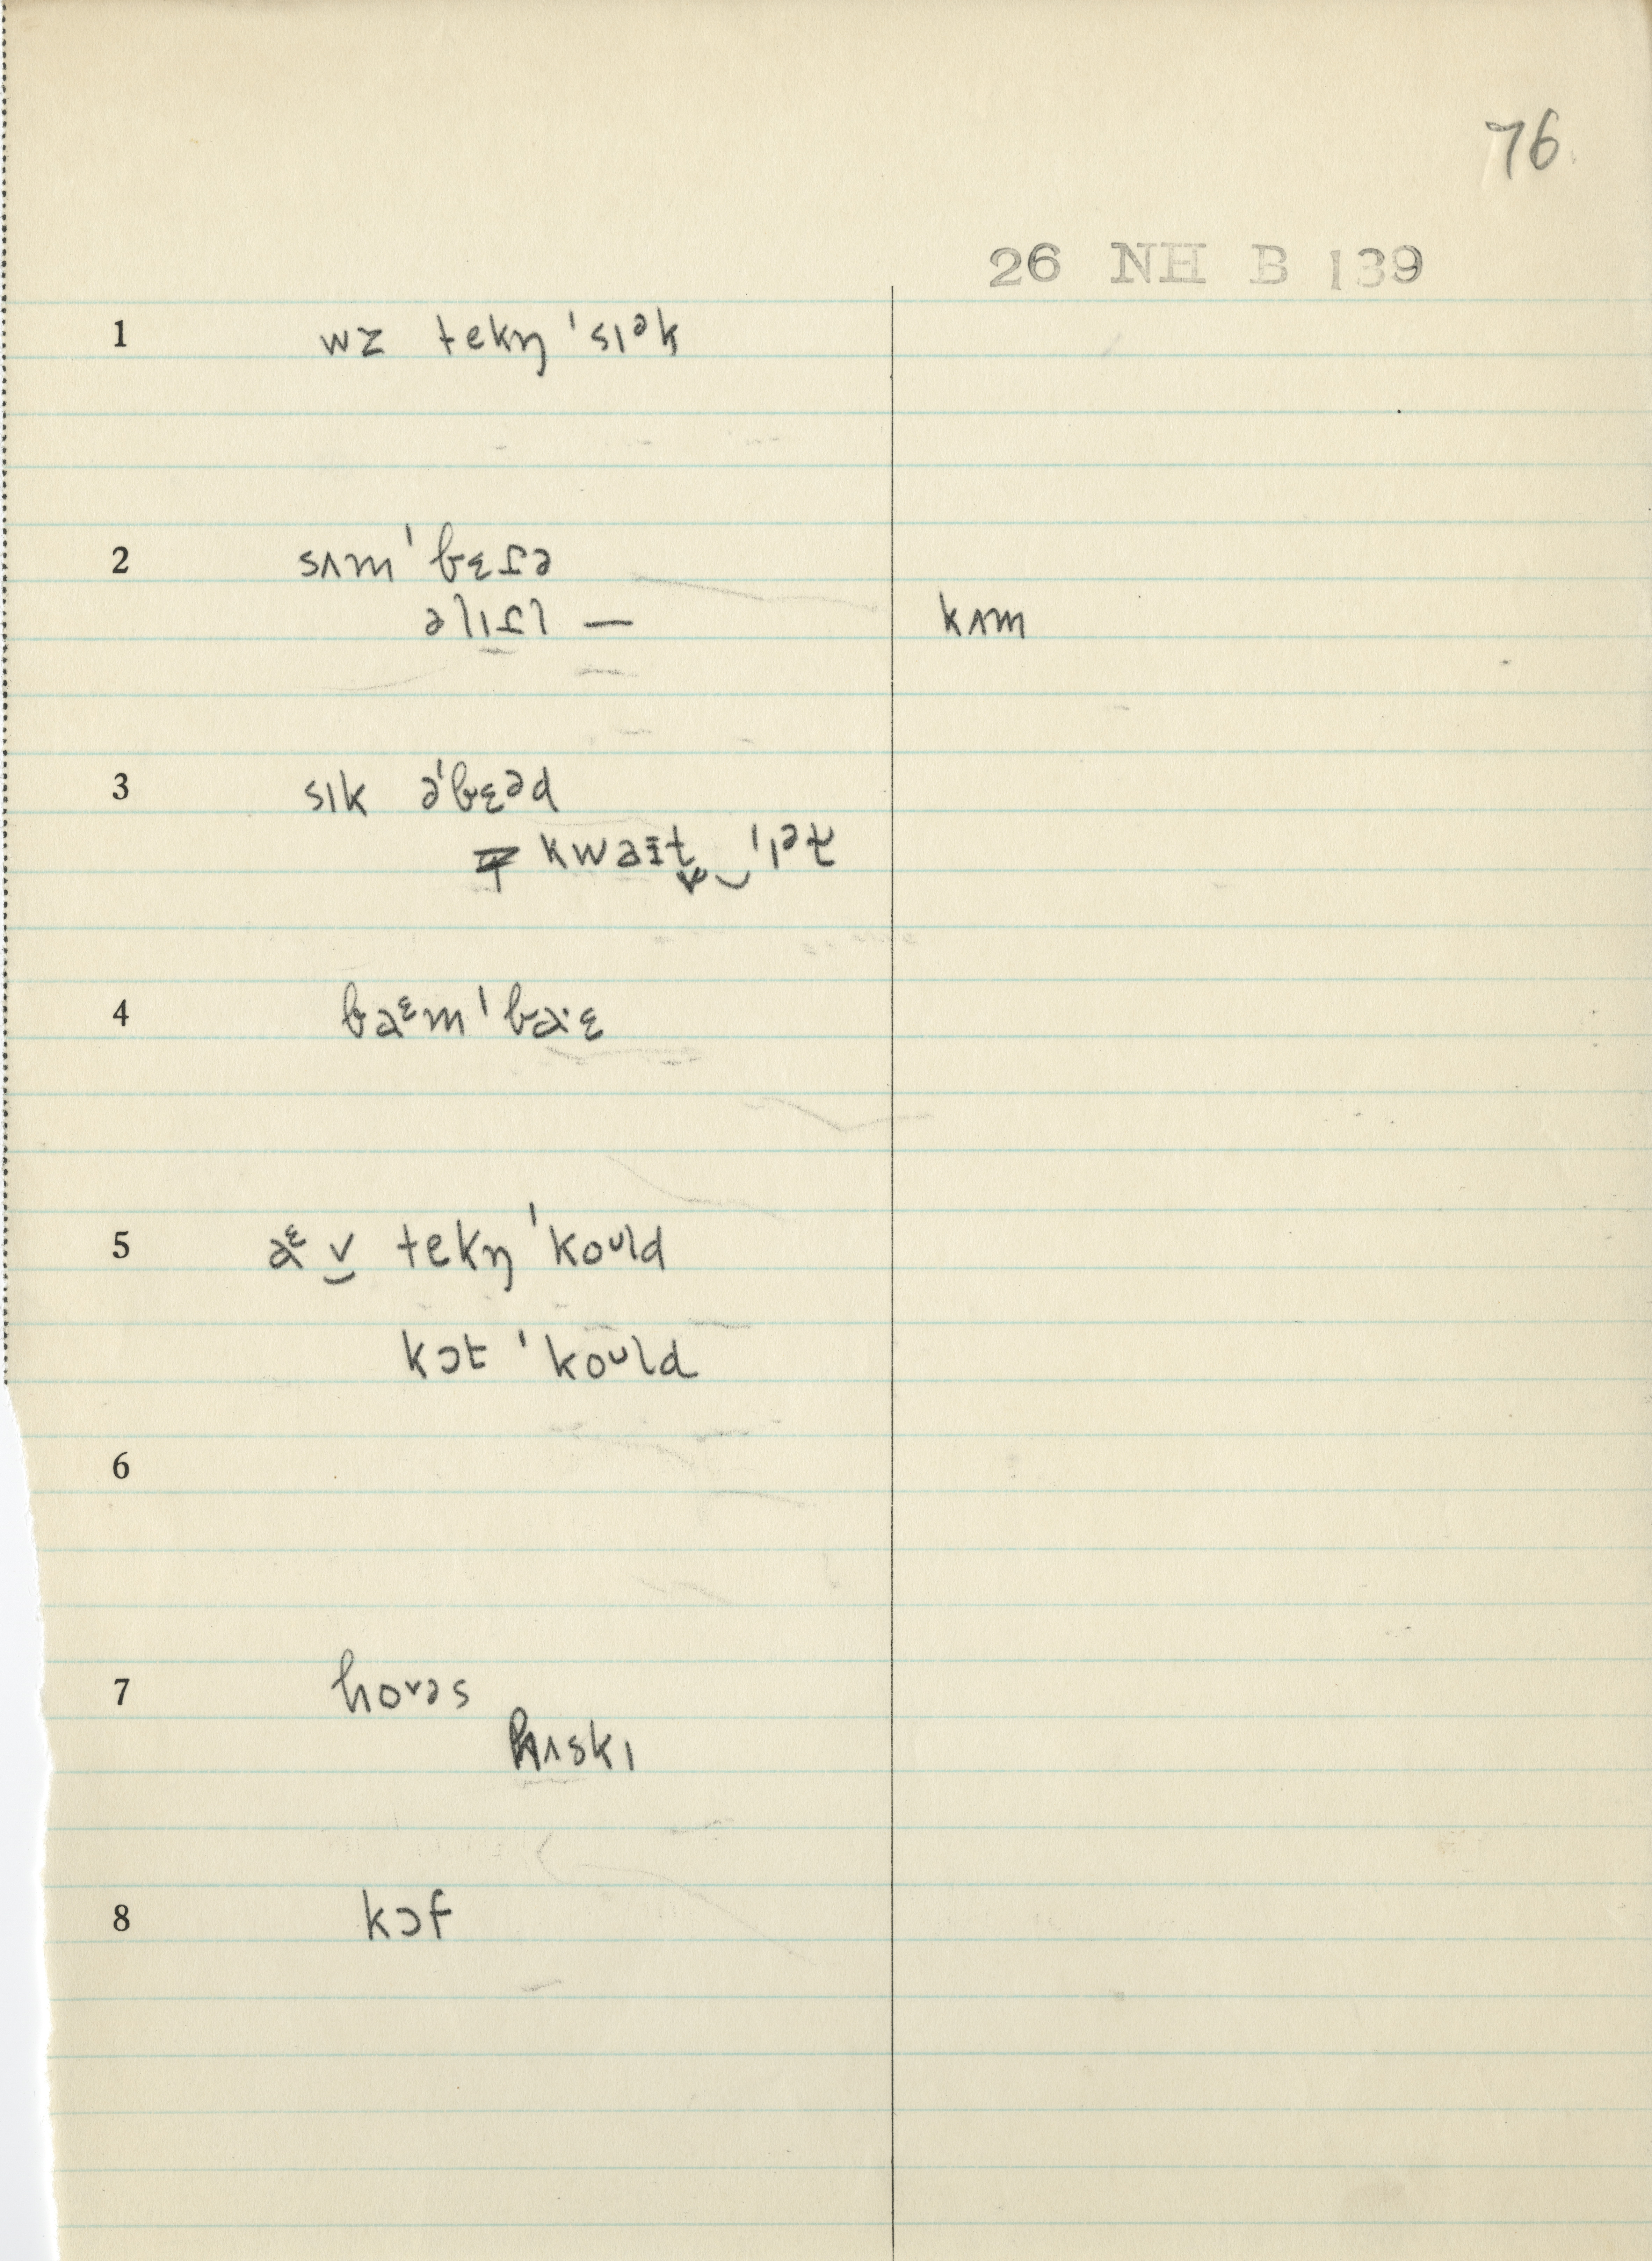 76
26 NH B 139
1 wz tekŋ ˈsɪᵊk
2 sʌmˈbɛɾə
əlɪɾl — kʌm
3 sɪk əˈbɛᵊd
kwaɪt̬ ‿ ˈɪᵊt̬
4 baᵋmˈba·ɛ
5 aᵋ v̮ tekŋ ˈkoᴜld
kɔt ˈkoᴜld
6
7 hoᵛəs
hʌskɪ
8 kɔf